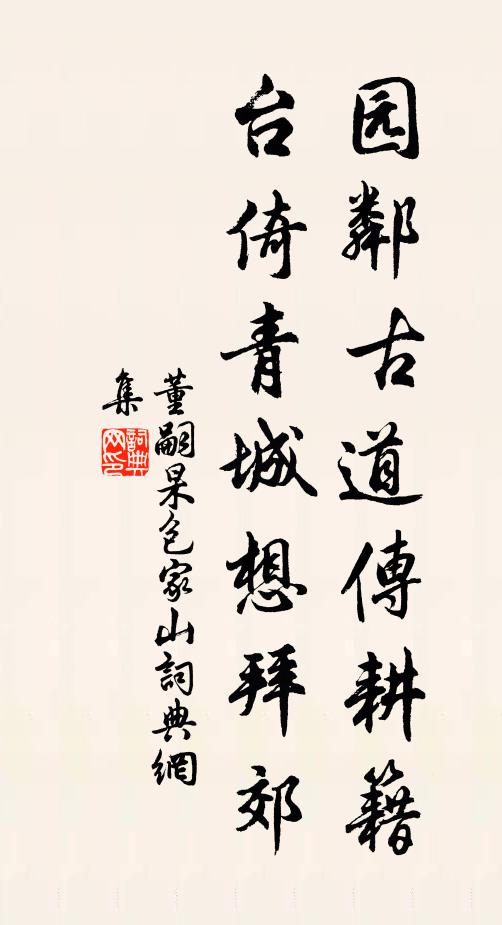 园鄰古道傳耕籍
台倚青城想拜郊
董嗣杲包家山詞典網
集
詞典网印